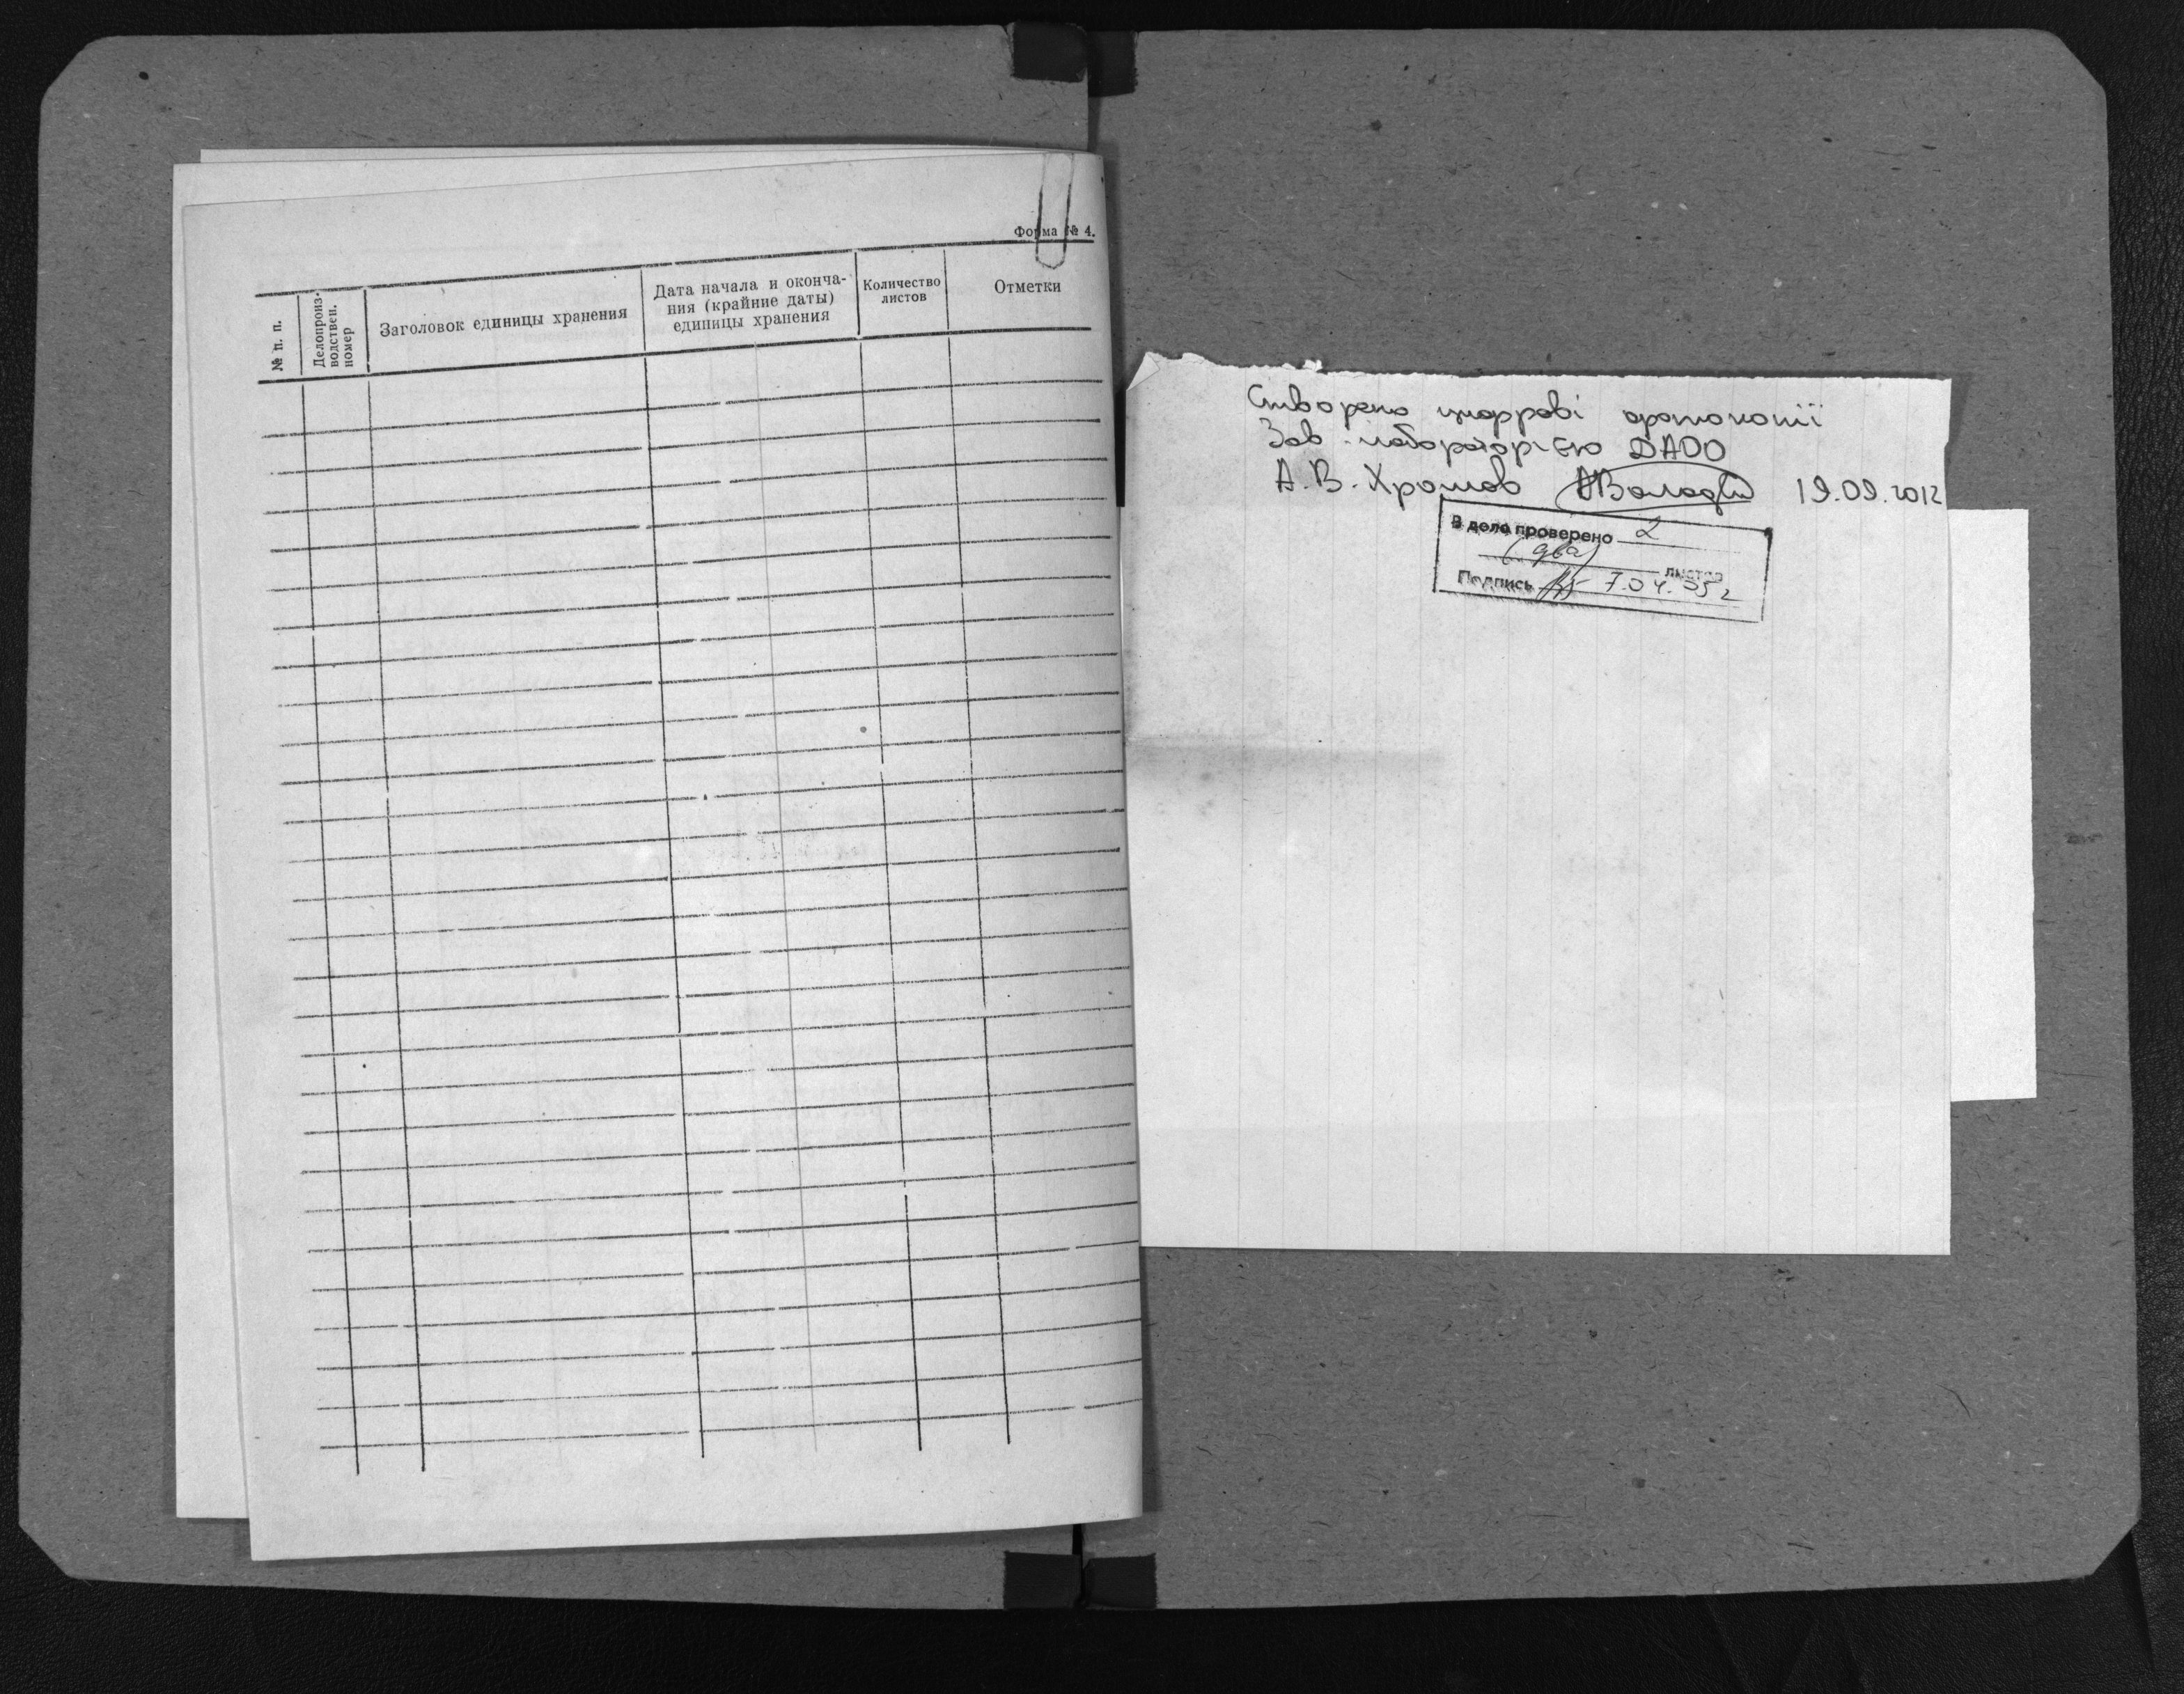 Форма № 4.
№ п. п.
Делопроиз-
водствен.
номер
Заголовок единицы хранения
Дата начала и оконча-
ния (крайние даты)
единицы хранения
Количество
листов
Отметки
Створено цифрові фотокопії
Зав. лабораторією ДАОО
А.В. Хромов 19.09.2012
В деле проверено 2
(два)
листов
Подпись 7.04.05 г